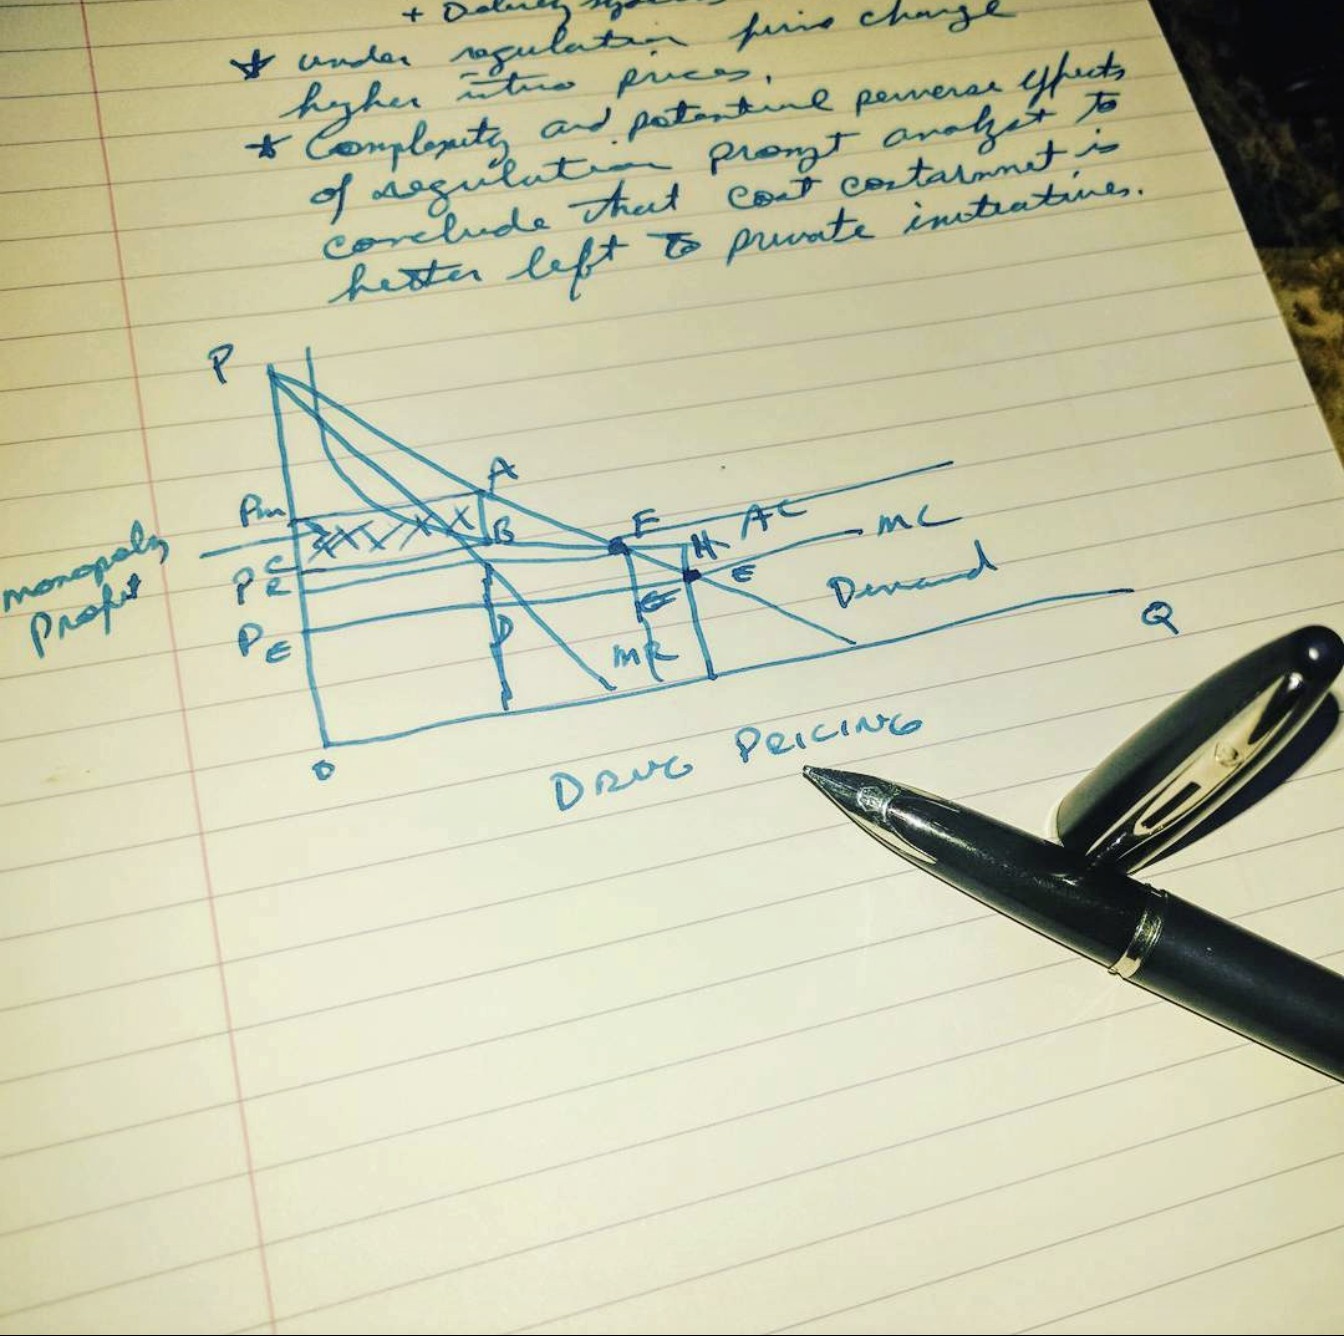 + Delivery
★ under regulation firms change
higher intro prices.
★ Complexity and potential perverse effects
of regulation prompt analyst to
conclude that cost containmnet is
better left to private initiatives.
P
A
Pm
B
F
H
AC
MC
C
PR
E
Demand
monopoly
Profit
PE
D
MR
Q
O
DRUG PRICING